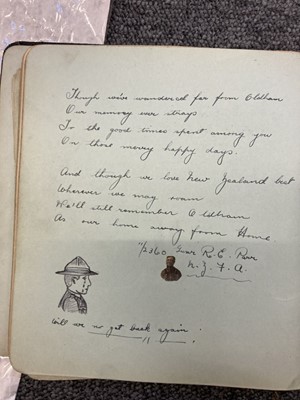 Though we've wandered far from Oldham
Our memory ever strays
To the good times spent among you
On those merry happy days.
And though we love New Zealand best
Wherever we may roam
We'll still remember Oldham
As our home away from Home
11/2360 R. E.
N. Z. F. A.
Will we get back again.